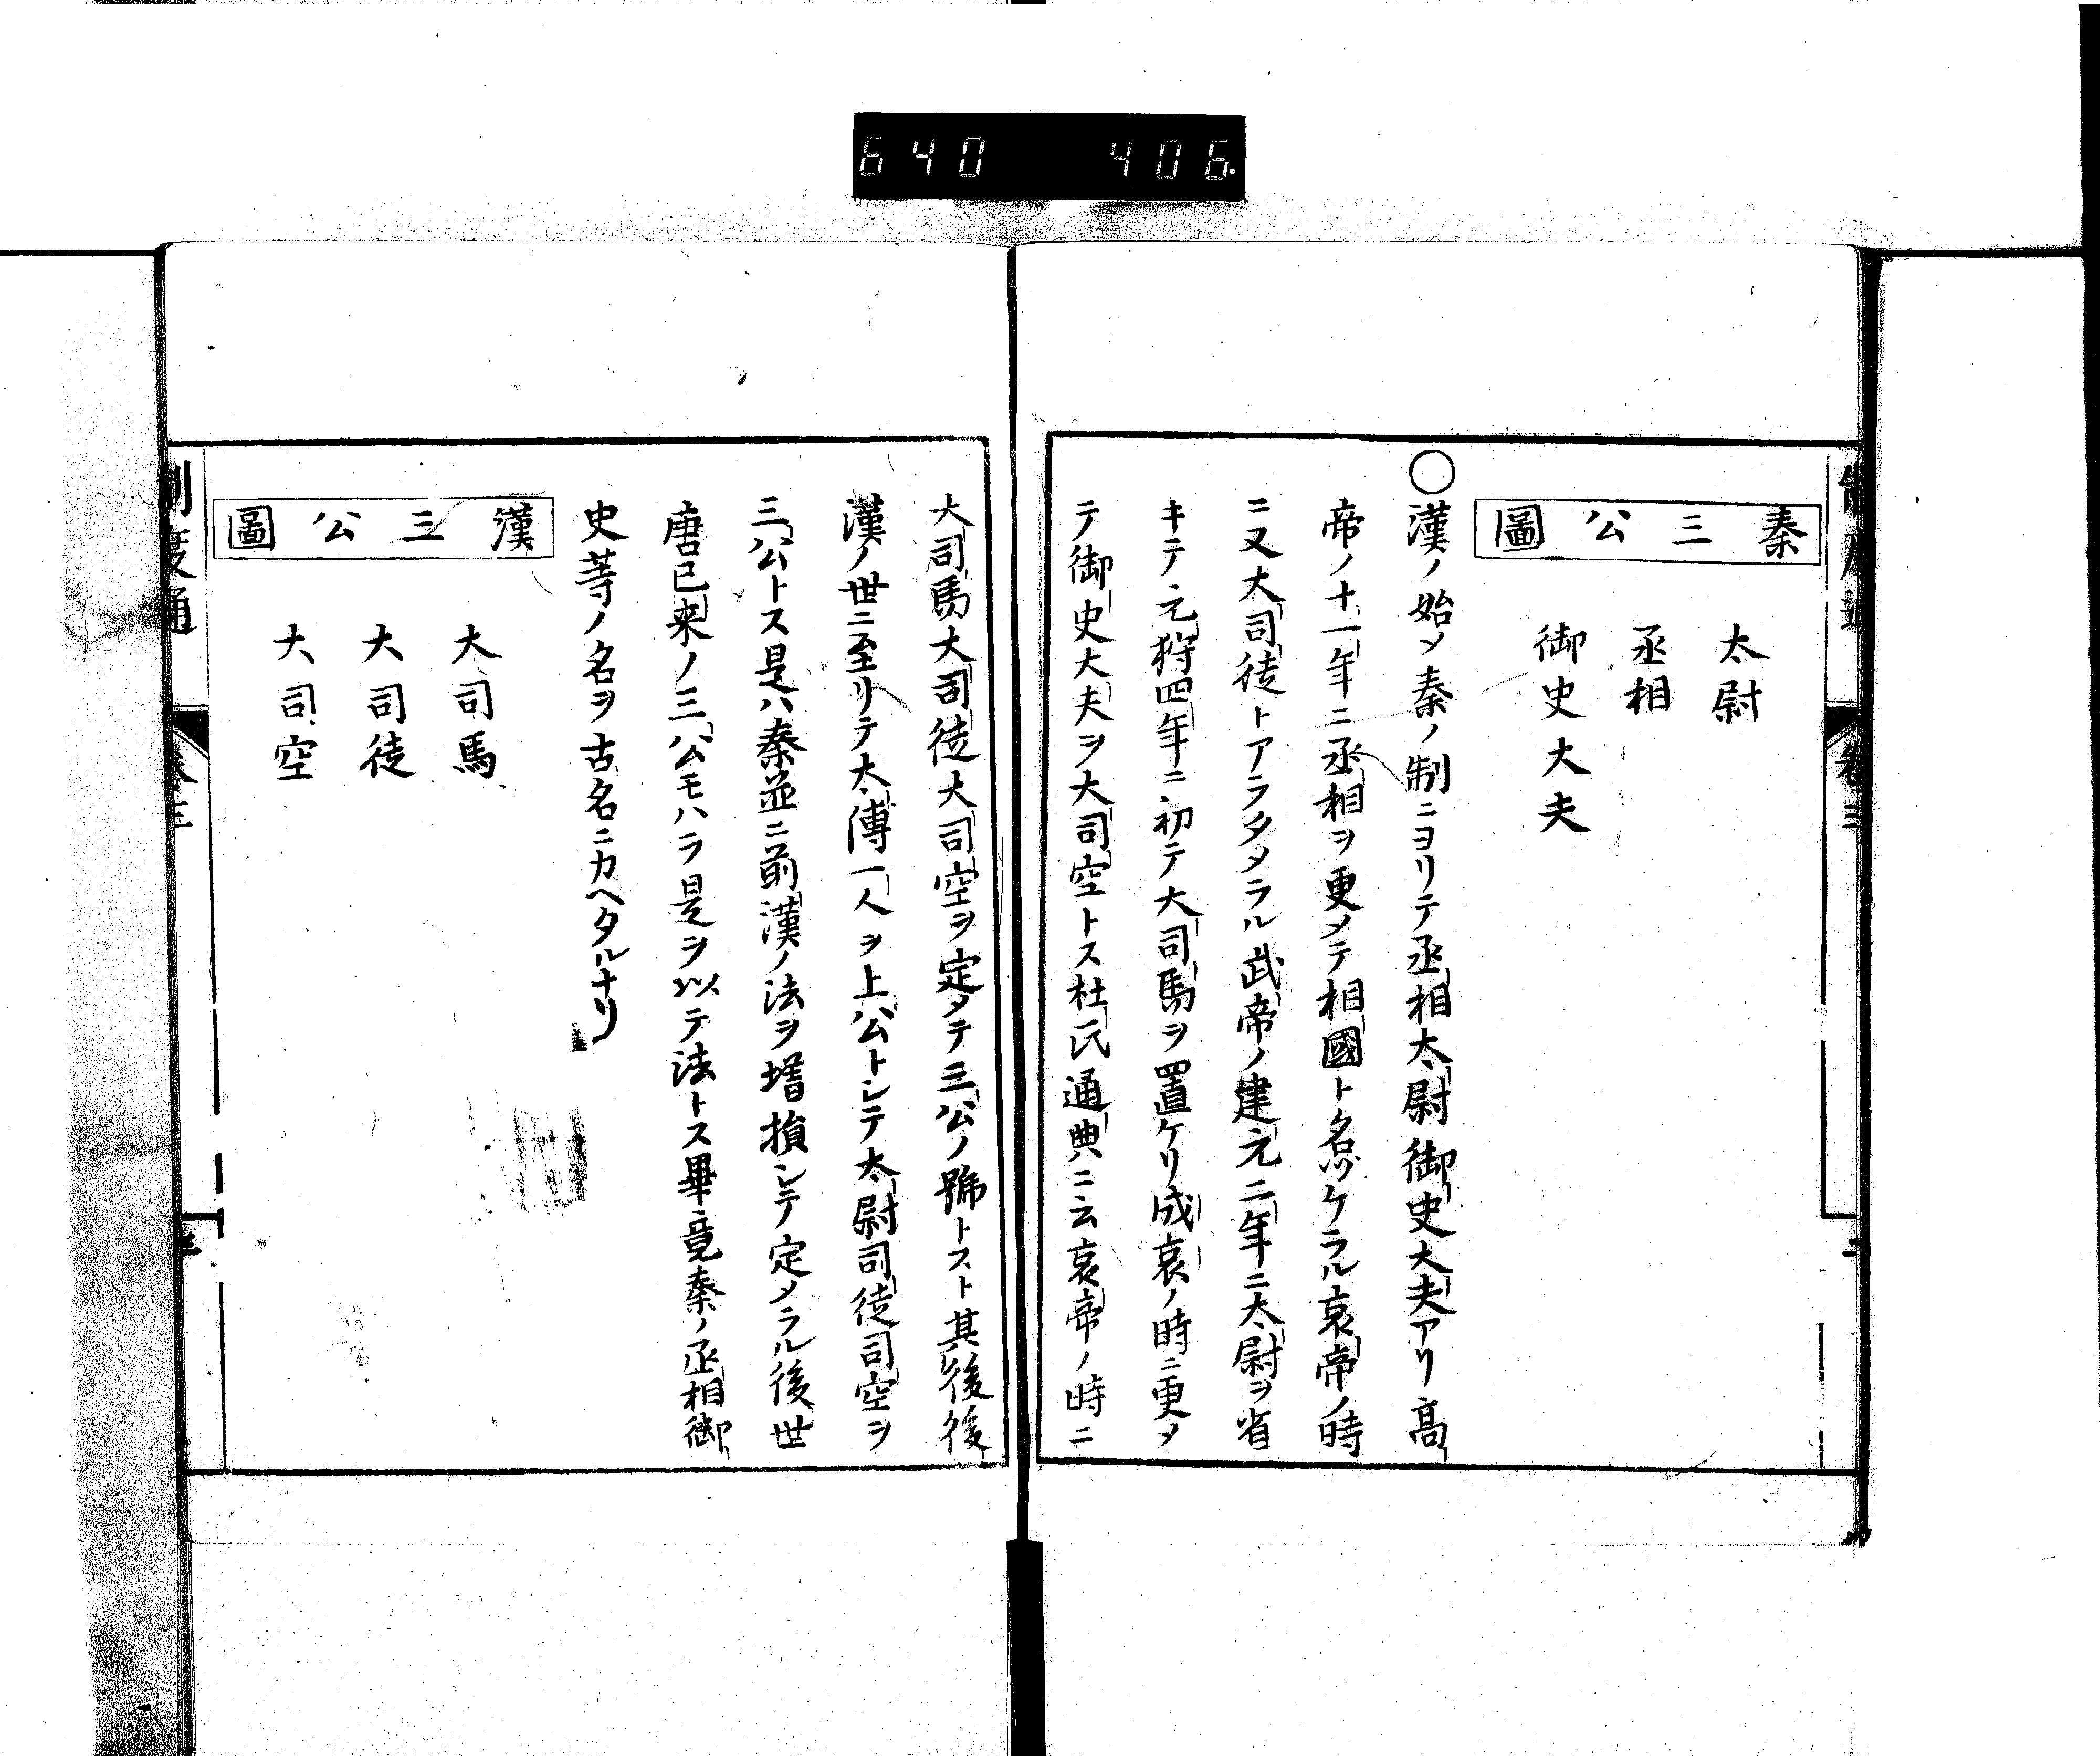 640 406
秦三公圖
太尉
丞相
御史大夫
〇漢ノ始メ秦ノ制ニヨリテ丞相太尉御史大夫アリ高
帝ノ十一年ニ丞相ヲ更メテ相國ト名ツケラル哀帝ノ時
ニ又大司徒トアラタメラル武帝ノ建元二年ニ太尉ヲ省
キテ元狩四年ニ初テ大司馬ヲ置ケリ成哀ノ時ニ更メ
テ御史大夫ヲ大司空トス杜氏通典ニ云哀帝ノ時ニ
大司馬大司徒大司空ヲ定メテ三公ノ號トスト其後後
漢ノ世ニ至リテ太傅一人ヲ上公トシテ太尉司徒司空ヲ
三公トス是ハ秦並ニ前漢ノ法ヲ増損シテ定メラル後世
唐已来ノ三公モハラ是ヲ以テ法トス畢竟秦ノ丞相御
史等ノ名ヲ古名ニカヘタルナリ
漢三公圖
大司馬
大司徒
大司空
制度通 卷三